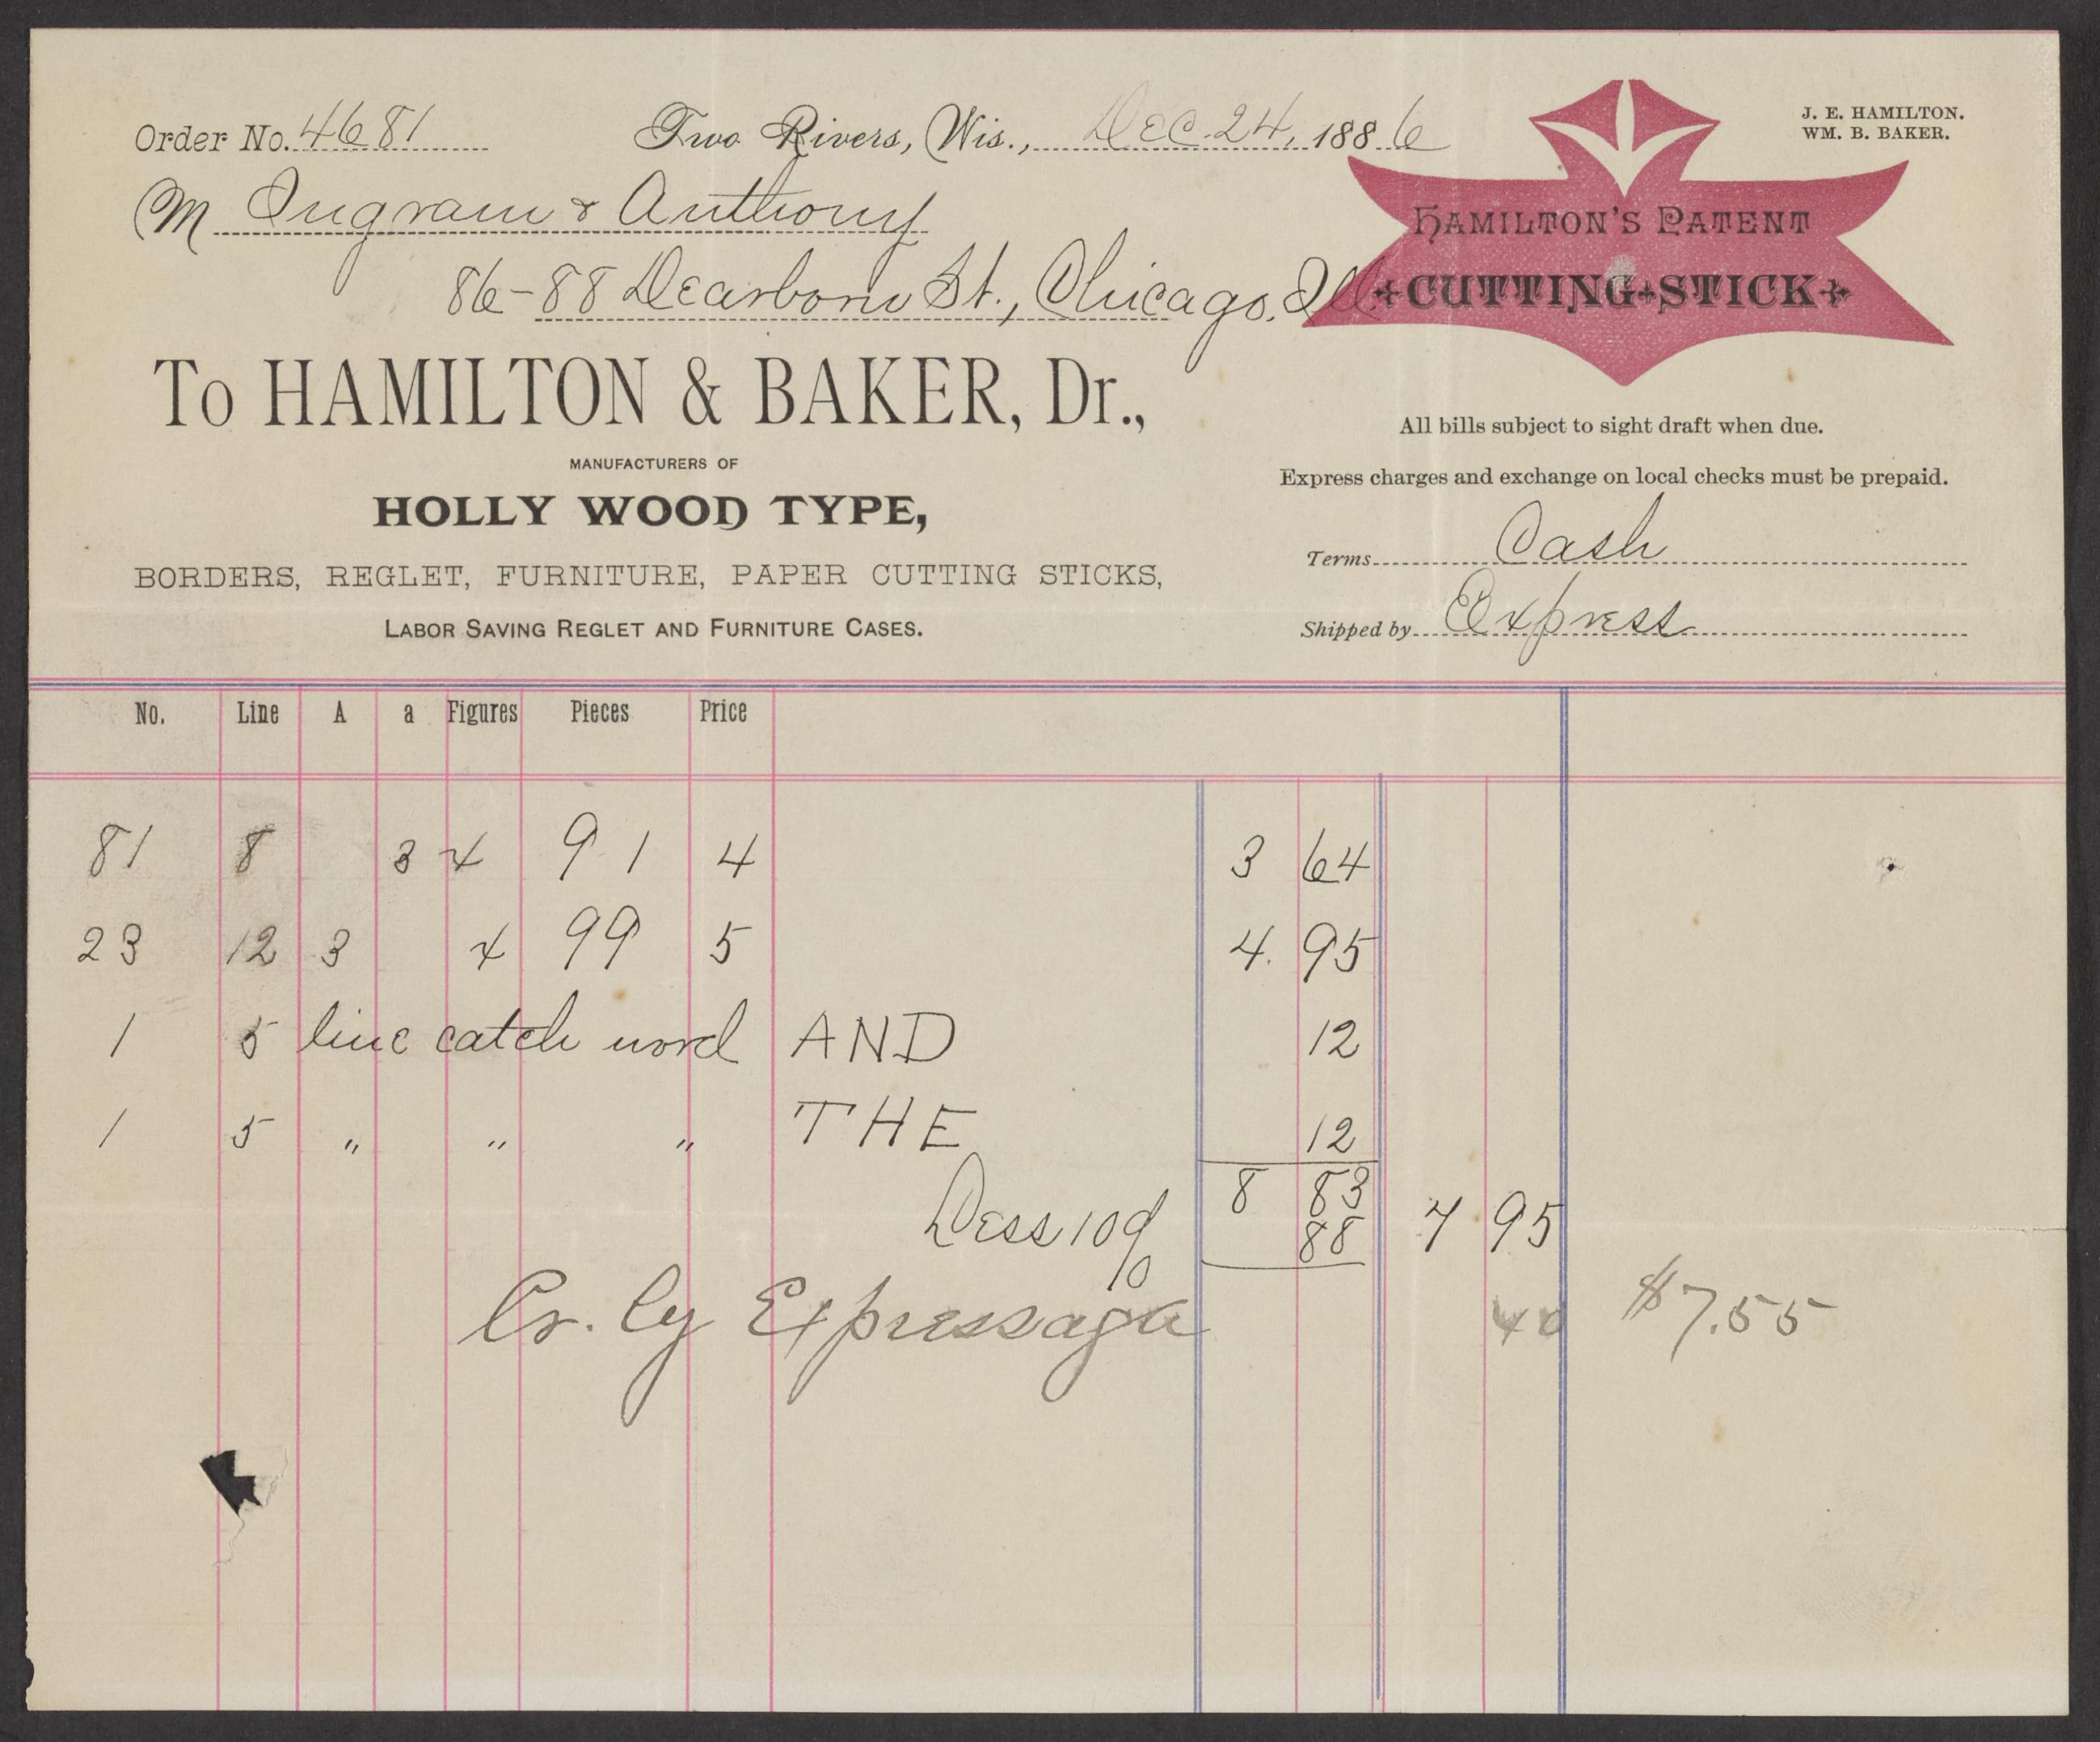 Order No. 4681 Two Rivers, Wis., Dec. 24, 1886
J. E. HAMILTON.
WM. B. BAKER.
M Ingram & Anthony
86-88 Dearborn St., Chicago. Ill.
HAMILTON'S PATENT
CUTTING STICK
To HAMILTON & BAKER, Dr.,
MANUFACTURERS OF
HOLLY WOOD TYPE,
BORDERS, REGLET, FURNITURE, PAPER CUTTING STICKS,
LABOR SAVING REGLET AND FURNITURE CASES.
All bills subject to sight draft when due.
Express charges and exchange on local checks must be prepaid.
Terms Cash
Shipped by Express
No. Line A a Figures Pieces Price
81 8 3 4 91 4 3 64
23 12 3 4 99 5 4. 95
1 5 line catch word AND 12
1 5 " " " THE 12
8 83
Less 10% 88 7 95
Cr. by Expressage 40 $7.55